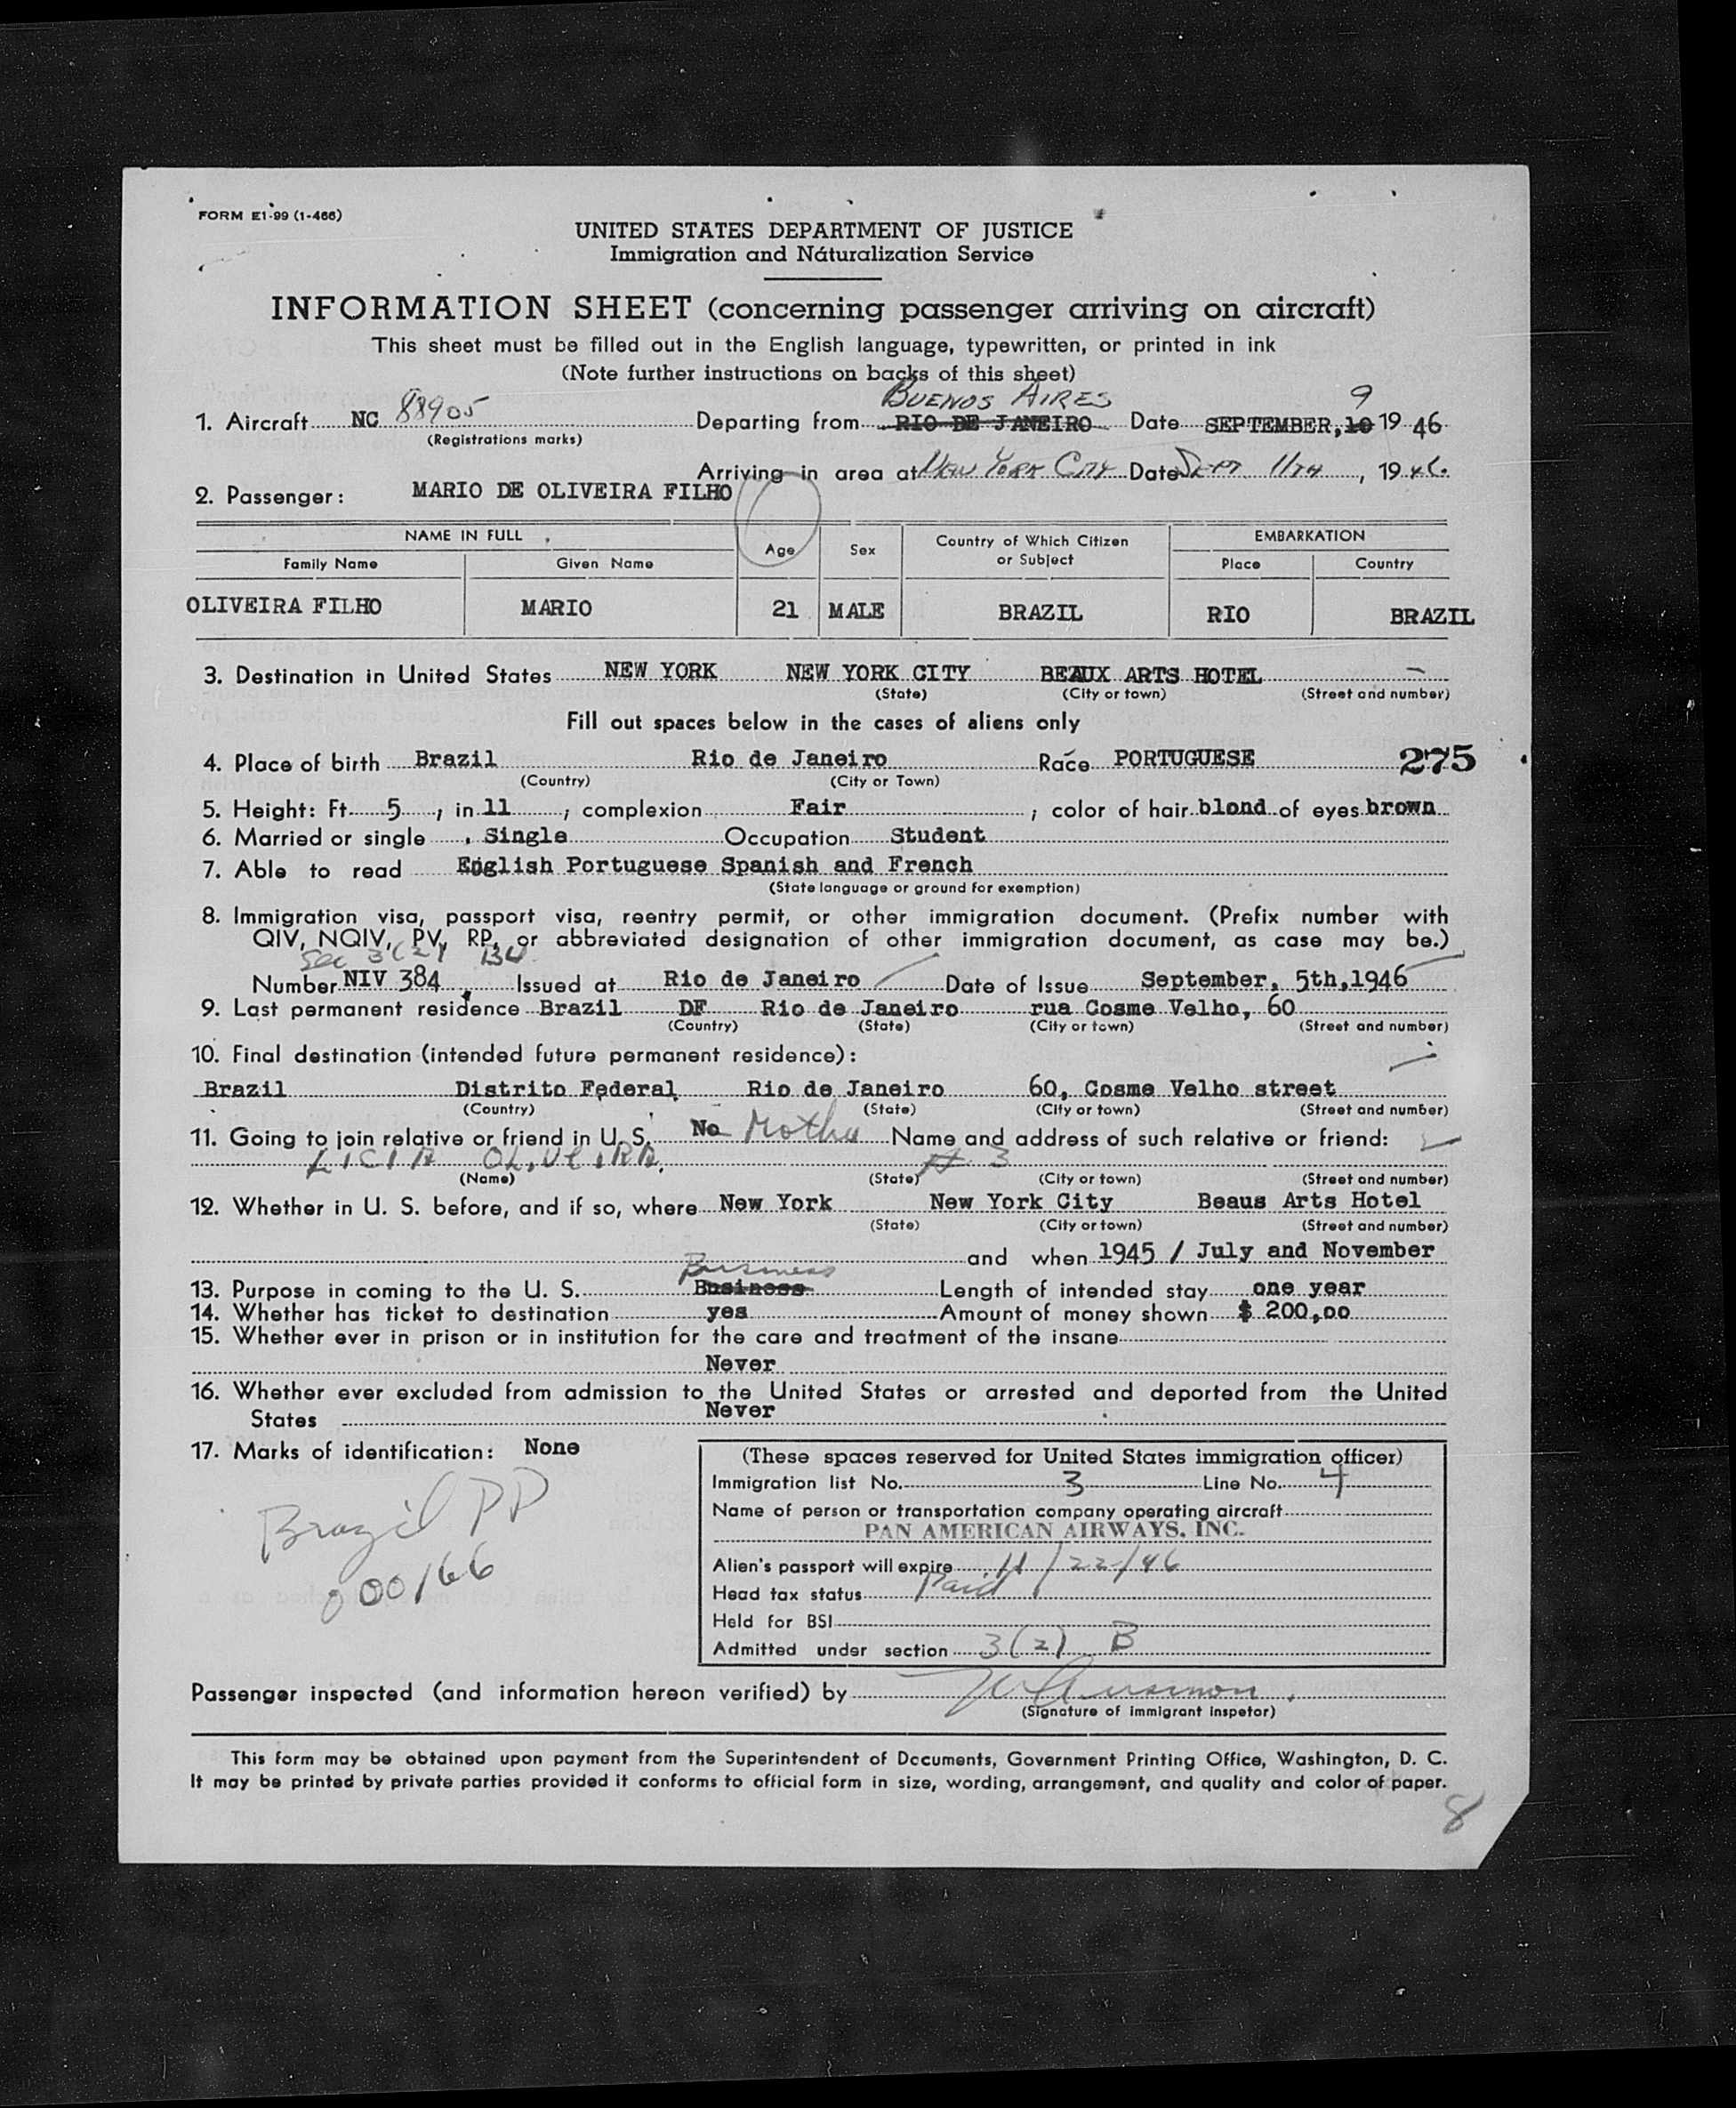 FORM E1-99 (1-466)
UNITED STATES DEPARTMENT OF JUSTICE
Immigration and Naturalization Service
INFORMATION SHEET (concerning passenger arriving on aircraft)
This sheet must be filled out in the English language, typewritten, or printed in ink
(Note further instructions on backs of this sheet)
BUENOS AIRES 9
1. Aircraft NC 88905 Departing from RIO DE JANEIRO Date SEPTEMBER, 10 19 46
(Registrations marks)
Arriving in area at NEW YORK CITY Date SEPT 11TH, 19 46.
2. Passenger: MARIO DE OLIVEIRA FILHO
NAME IN FULL Age Sex Country of Which Citizen or Subject EMBARKATION
Family Name Given Name Place Country
OLIVEIRA FILHO MARIO 21 MALE BRAZIL RIO BRAZIL
3. Destination in United States NEW YORK NEW YORK CITY BEAUX ARTS HOTEL
(State) (City or town) (Street and number)
Fill out spaces below in the cases of aliens only
4. Place of birth Brazil Rio de Janeiro Race PORTUGUESE 275
(Country) (City or Town)
5. Height: Ft. 5, in 11; complexion Fair; color of hair blond of eyes brown
6. Married or single Single Occupation Student
7. Able to read English Portuguese Spanish and French
(State language or ground for exemption)
8. Immigration visa, passport visa, reentry permit, or other immigration document. (Prefix number with
QIV, NQIV, PV, RP, or abbreviated designation of other immigration document, as case may be.)
Sec 3(2)
Number NIV 384 Issued at Rio de Janeiro Date of Issue September, 5th,1946
9. Last permanent residence Brazil DF Rio de Janeiro rua Cosme Velho, 60
(Country) (State) (City or town) (Street and number)
10. Final destination (intended future permanent residence):
Brazil Distrito Federal Rio de Janeiro 60, Cosme Velho street
(Country) (State) (City or town) (Street and number)
11. Going to join relative or friend in U. S. No Mother Name and address of such relative or friend:
LICIA OLIVEIRA. # 3
(Name) (State) (City or town) (Street and number)
12. Whether in U. S. before, and if so, where New York New York City Beaus Arts Hotel
(State) (City or town) (Street and number)
and when 1945 / July and November
Business
13. Purpose in coming to the U. S. Business Length of intended stay one year
14. Whether has ticket to destination yes Amount of money shown $ 200,00
15. Whether ever in prison or in institution for the care and treatment of the insane
Never
16. Whether ever excluded from admission to the United States or arrested and deported from the United
States Never
17. Marks of identification: None
Brazil PP
000166
(These spaces reserved for United States immigration officer)
Immigration list No. 3 Line No. 4
Name of person or transportation company operating aircraft
PAN AMERICAN AIRWAYS, INC.
Alien's passport will expire 11/22/46
Head tax status Paid
Held for BSI
Admitted under section 3(2) B
Passenger inspected (and information hereon verified) by
(Signature of immigrant inspetor)
This form may be obtained upon payment from the Superintendent of Documents, Government Printing Office, Washington, D. C.
It may be printed by private parties provided it conforms to official form in size, wording, arrangement, and quality and color of paper.
8